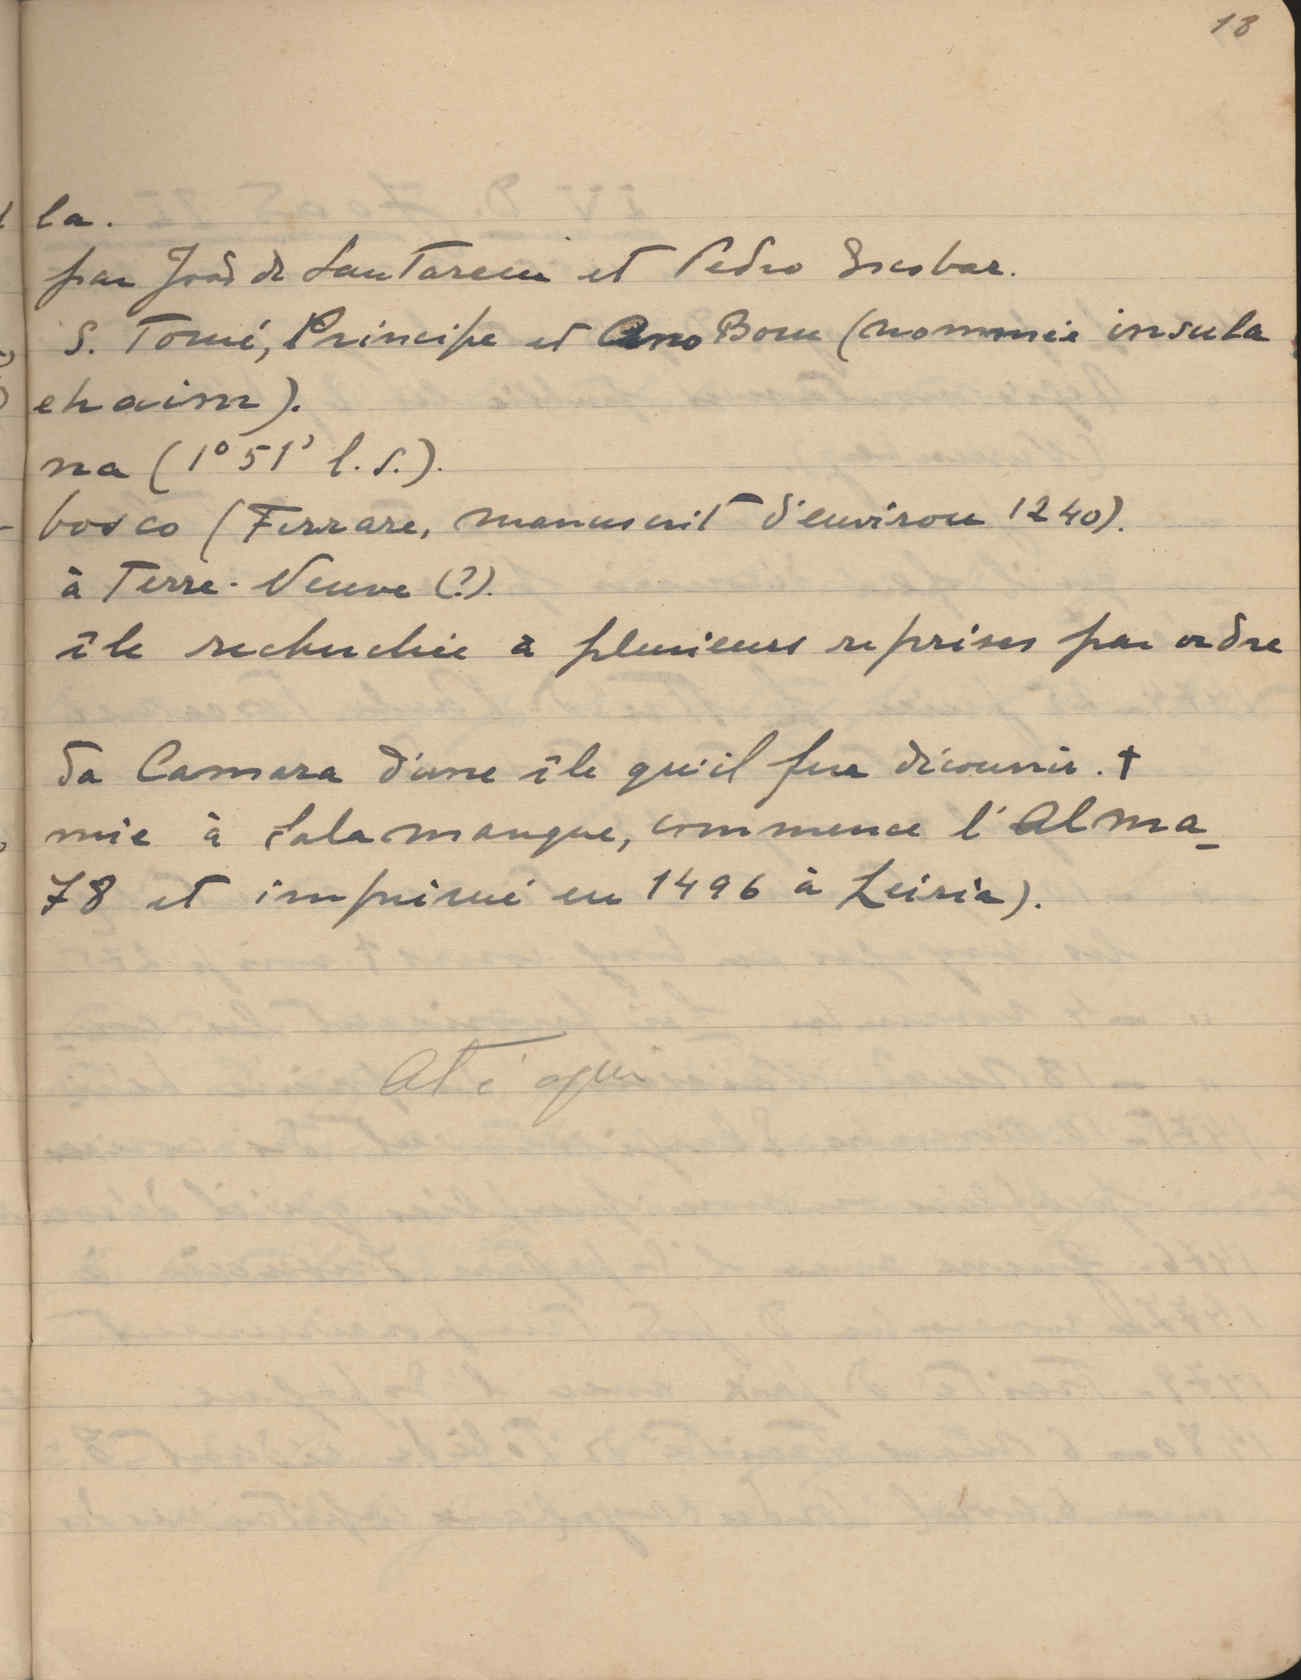 18
la.
par João de Santarem et Pedro Escobar.
S. Tomé, Principe et Ano Bom (nommée insula
ehaim).
na (1° 51' l. S.).
bosco (Ferrare, manuscrit d'environ 1240).
à Terre-Neuve (?).
île recherchée à plusieurs reprises par ordre
da Camara d'une île qu'il fera découvrir. †
mie à Salamanque, commence l'Alma-
78 et imprimé en 1496 à Leiria).
Até aqui